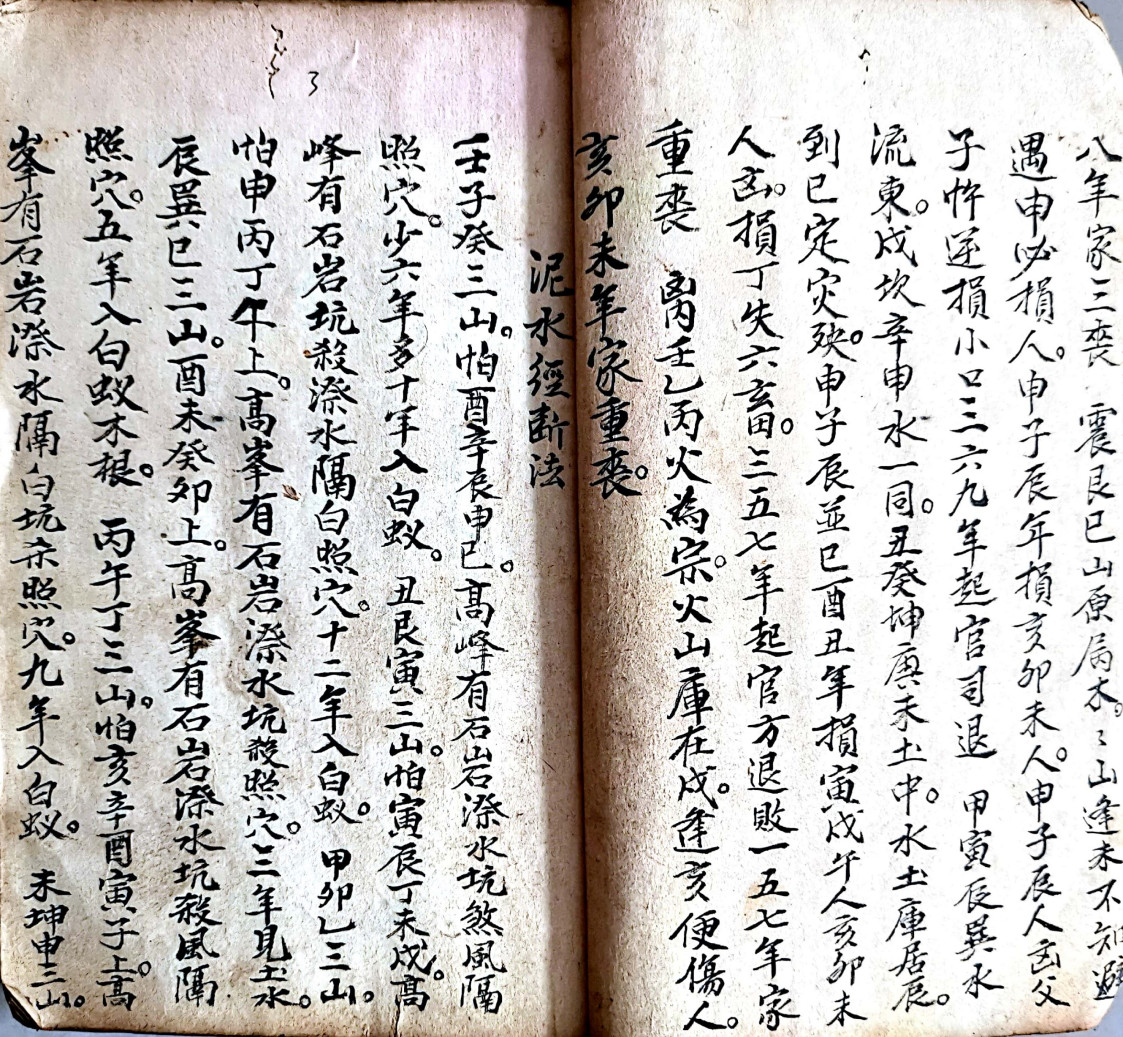 八年家三喪 震艮巳山原局木。〻山逢未不知避
遇申必損人。申子辰年損亥卯未人。申子辰人凶父
子忤逆損小口三六九年起官司退 甲寅辰巽水
流東。戌坎辛申水一同。丑癸坤庚未土中。水土庫居辰。
到巳定災殃。申子辰並巳酉丑年損寅戌午人亥卯未
人凶。損丁失六畜。三五七年起官方退敗一五七年家
重喪 离壬乙丙火為宗。火山庫在戌。逢亥便傷人。
亥卯未年家重喪。
泥水經断法
壬子癸三山。怕酉辛辰申巳。高峰有石岩漈水坑煞風隔
照穴。少六年多十年入白蚁。 丑艮寅三山。怕寅辰丁未戌。高
峰有石岩坑殺漈水隔白照穴。十二年入白蚁。 甲卯乙三山。
怕申丙丁午上。高峯有石岩漈水坑殺照穴。三年見土水。
辰巽巳三山。酉未癸卯上。高峯有石岩漈水坑殺風隔
照穴。五年入白蚁木根。 丙午丁三山。怕亥辛酉寅子上。高
峯有石岩漈水隔白坑杀照穴。九年入白蚁。 未坤申三山。